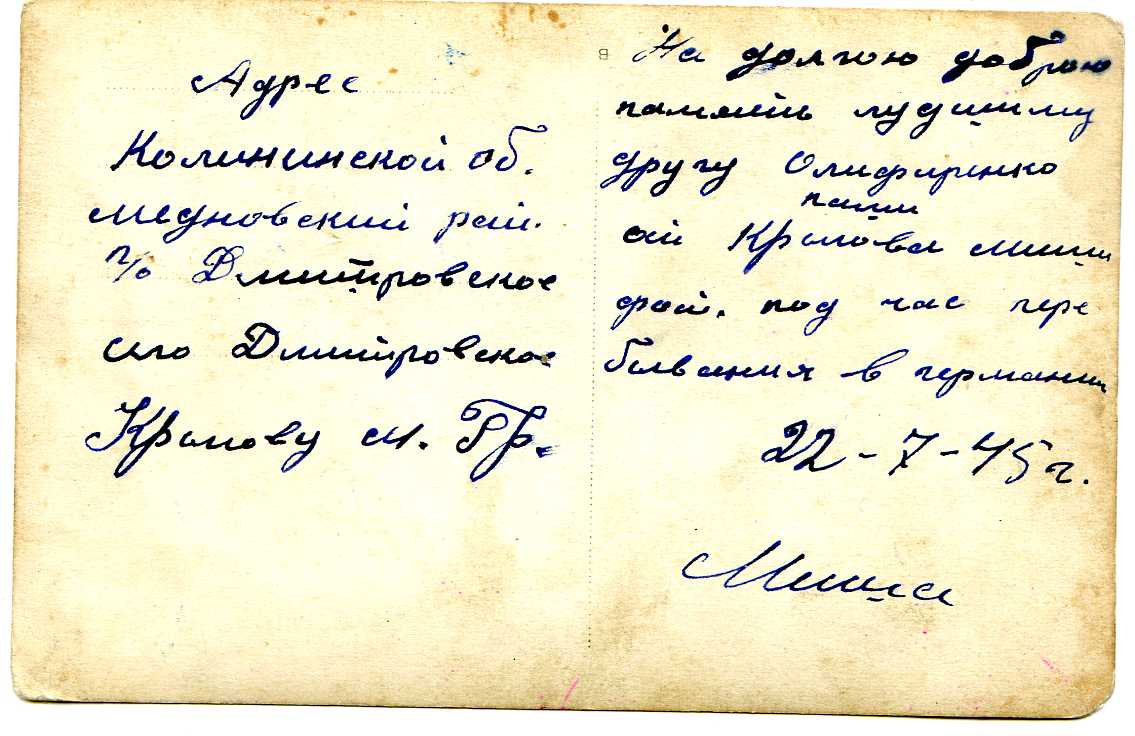 Адрес
Калининской об.
Медновский рай.
п/о Дмитровское
село Дмитровское
Крылову М. Гр.
На долгою доброю
память лудшиму
другу Олифиренко
паши
от Крылова миши
фот. под час пре
бывания в германии
22-7-45 г.
Миша